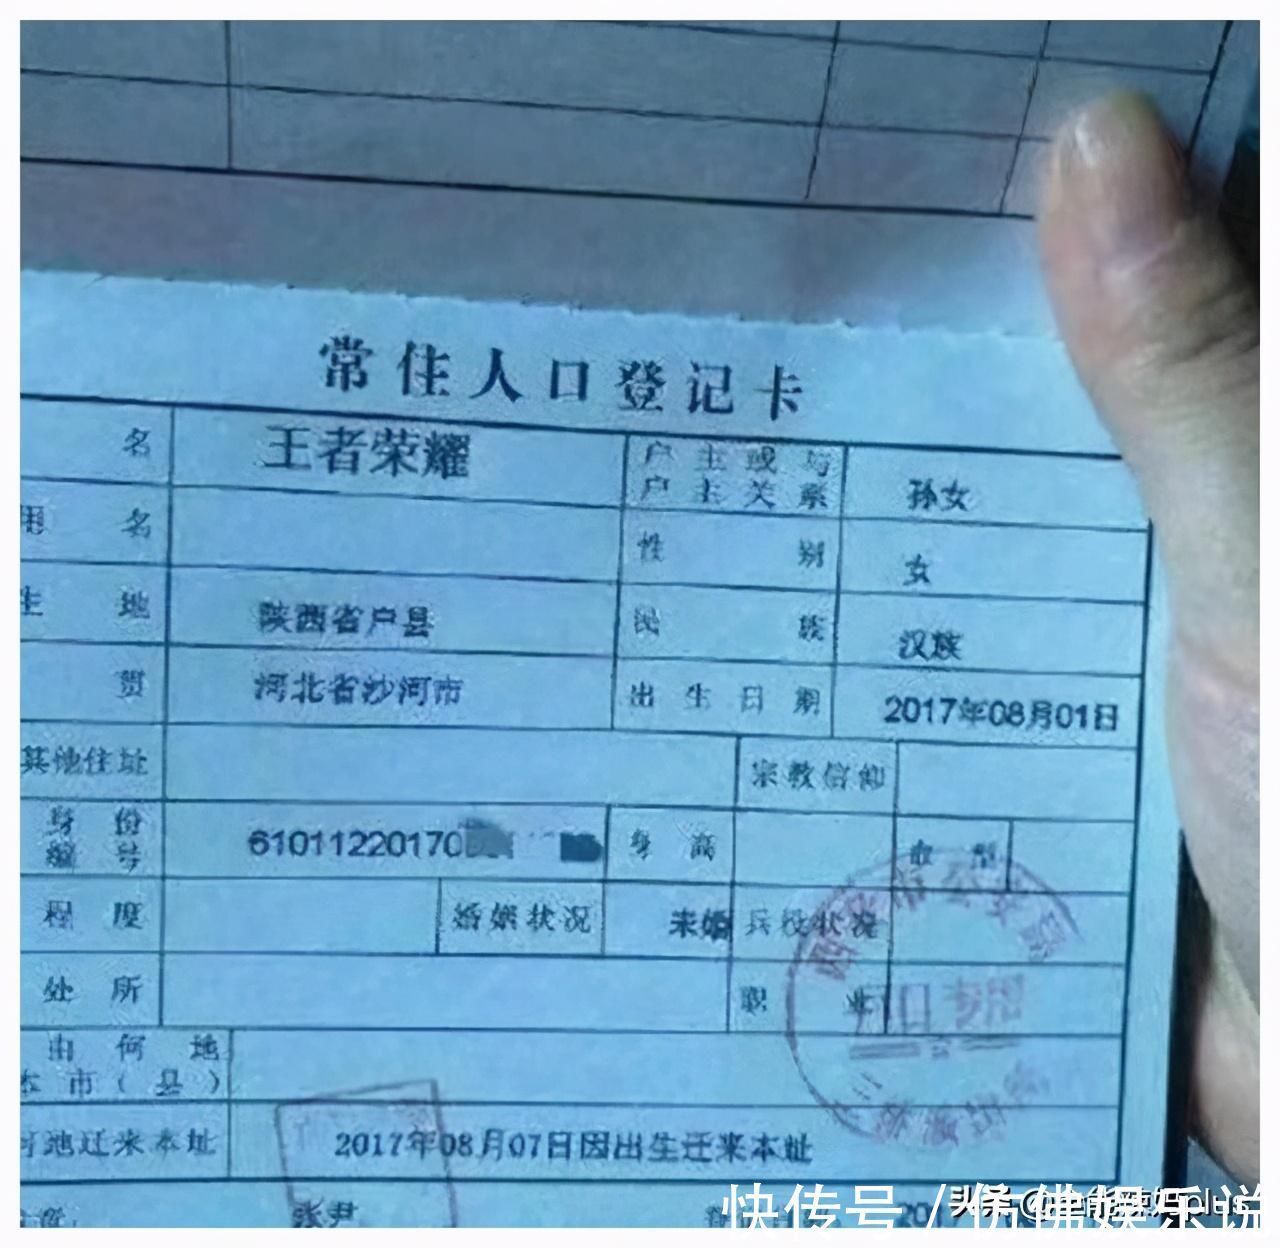 常住人口登记卡
名 王者荣耀 户主或与户主关系 孙女
用名 性别 女
生地 陕西省户县 民族 汉族
贯 河北省沙河市 出生日期 2017年08月01日
其他住址 宗教信仰
身份编号 61011220170 身高 血型
程度 婚姻状况 未婚 兵役状况
处所 职业
由何地本市(县)
何地迁来本址 2017年08月07日因出生迁来本址
张尹
西安市公安局
户口专用
快传号/仿佛娱乐说
头条